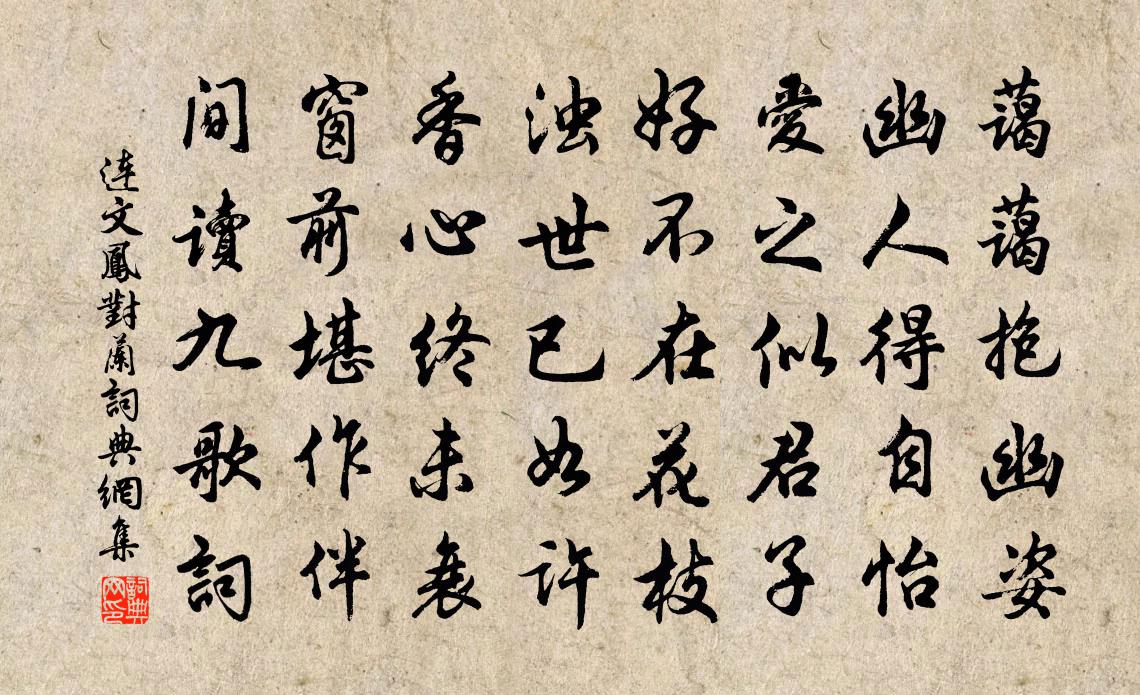 藹藹抱幽姿
幽人得自怡
愛之似君子
好不在花枝
浊世已如許
香心终未衰
窗前堪作伴
間讀九歌詞
連文鳳對蘭詞典網集
詞典网印